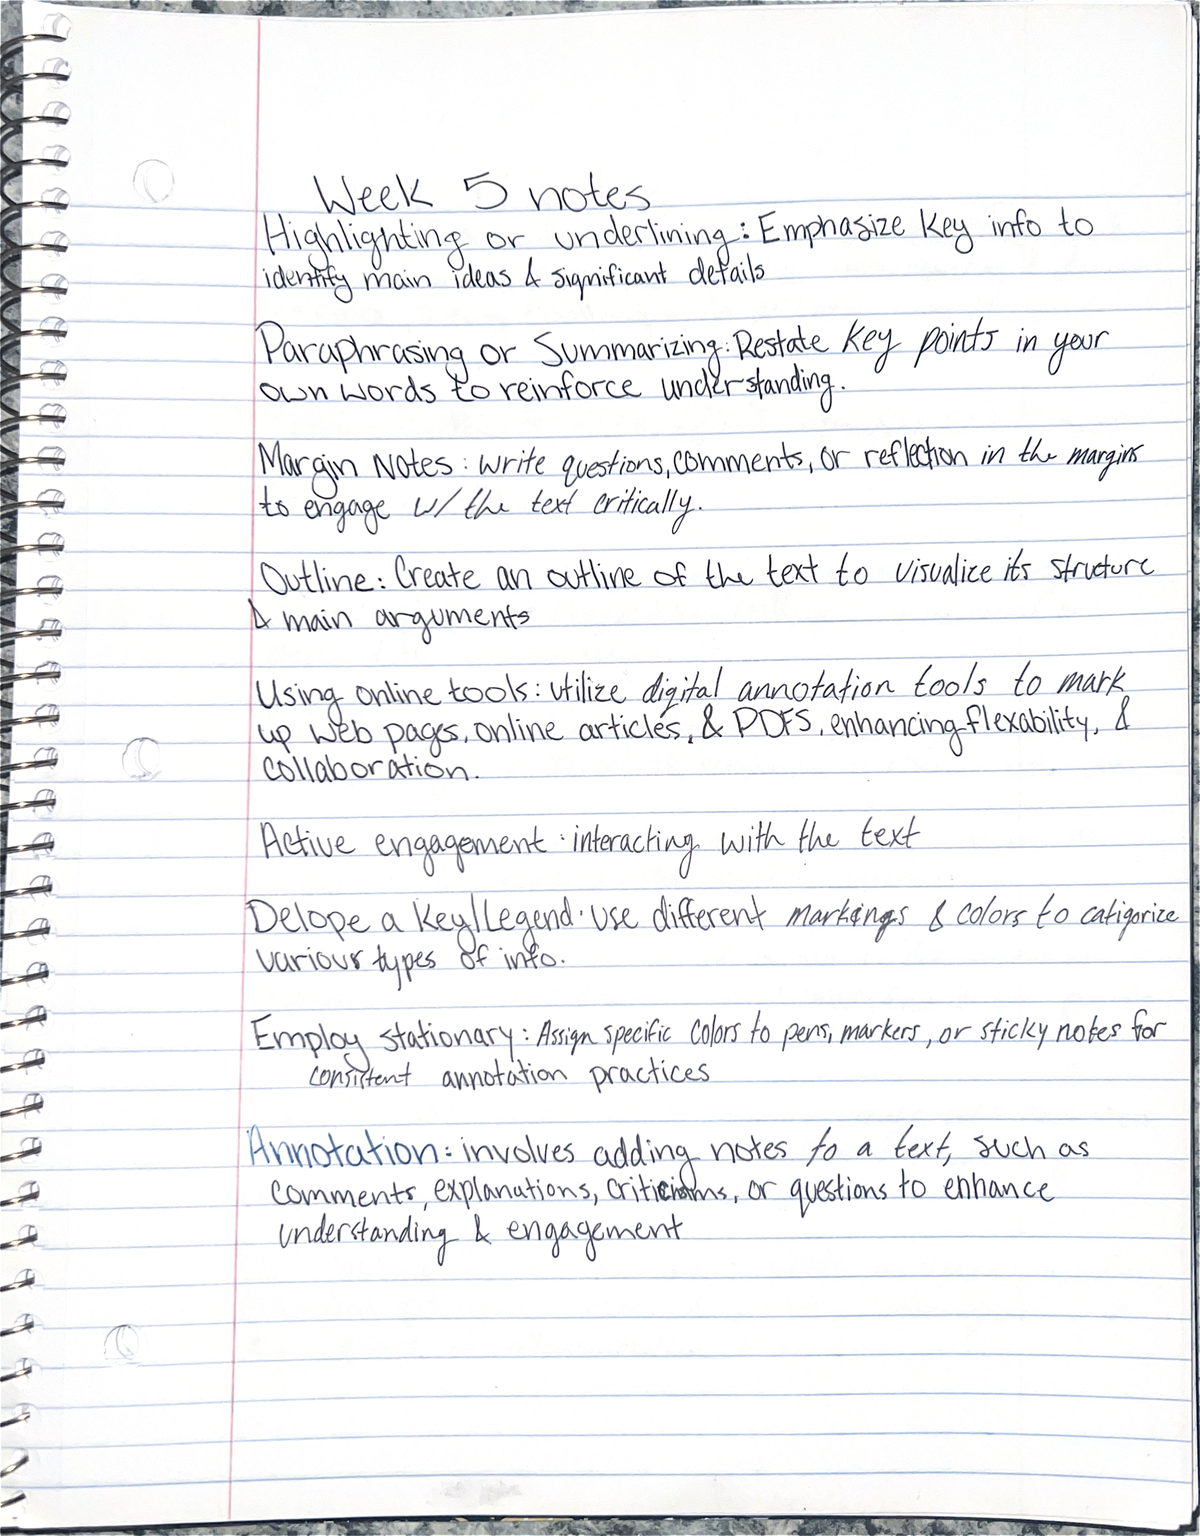 Week 5 notes
Highlighting or underlining: Emphasize key info to
identify main ideas & significant details
Paraphrasing or Summarizing: Restate key points in your
own words to reinforce understanding.
Margin Notes: write questions, comments, or reflection in the margins
to engage w/ the text critically.
Outline: Create an outline of the text to visualize its structure
& main arguments
Using online tools: utilize digital annotation tools to mark
up web pages, online articles, & PDFS, enhancing flexability, &
collaboration.
Active engagement: interacting with the text
Delope a Key/Legend: use different markings & colors to catigorize
various types of info.
Employ stationary: Assign specific colors to pens, markers, or sticky notes for
consistent annotation practices
Annotation: involves adding notes to a text, such as
comments, explanations, or questions to enhance
understanding & engagement